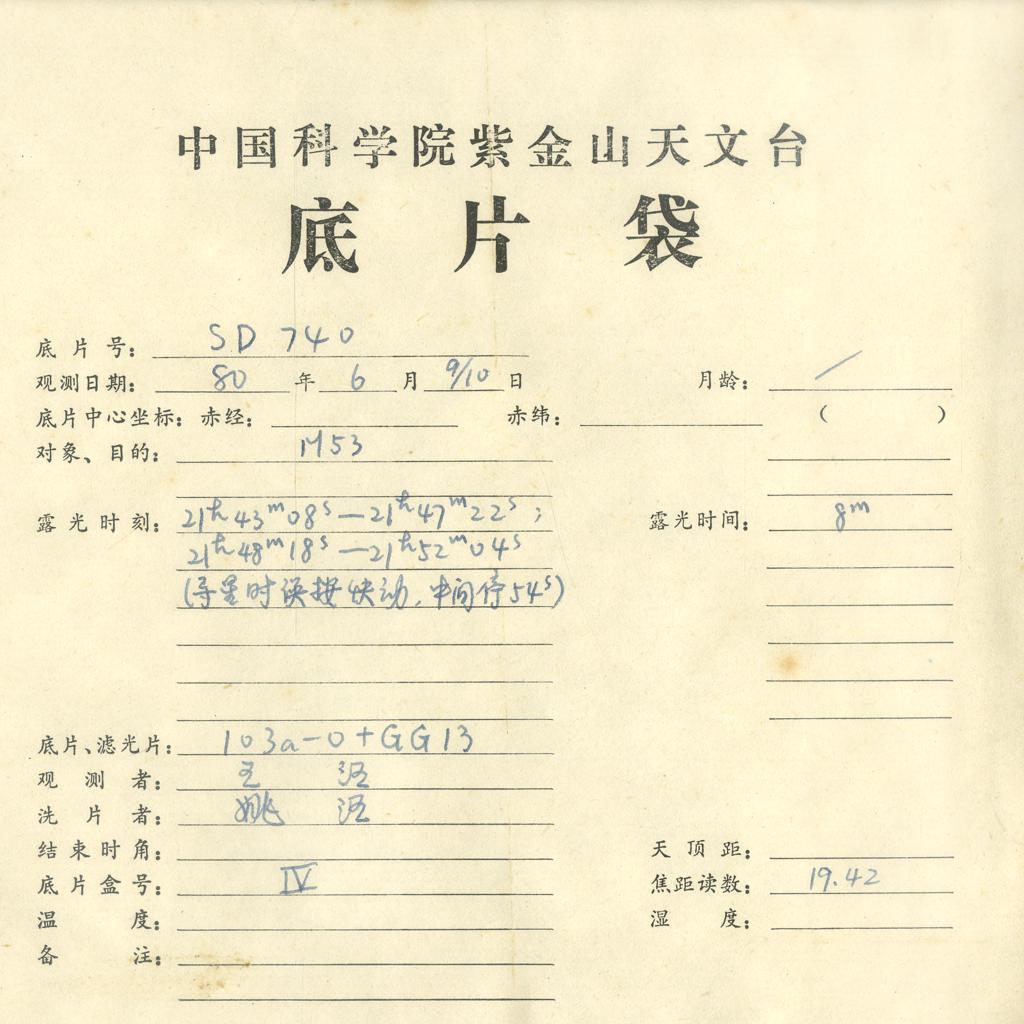 中国科学院紫金山天文台
底片袋
底片号: SD 740
观测日期: 80年 6月 9/10日 月龄: /
底片中心坐标: 赤经: 赤纬: ( )
对象、目的: M53
露光时刻: 21h43m08s—21h47m22s; 露光时间: 8m
21h48m18s—21h52m04s
(导星时误按快动,中间停54s)
底片、滤光片: 103a-O+GG13
观测者: 王
洗片者: 姚
结束时角: 天顶距:
底片盒号: IV 焦距读数: 19.42
温度: 湿度:
备注: